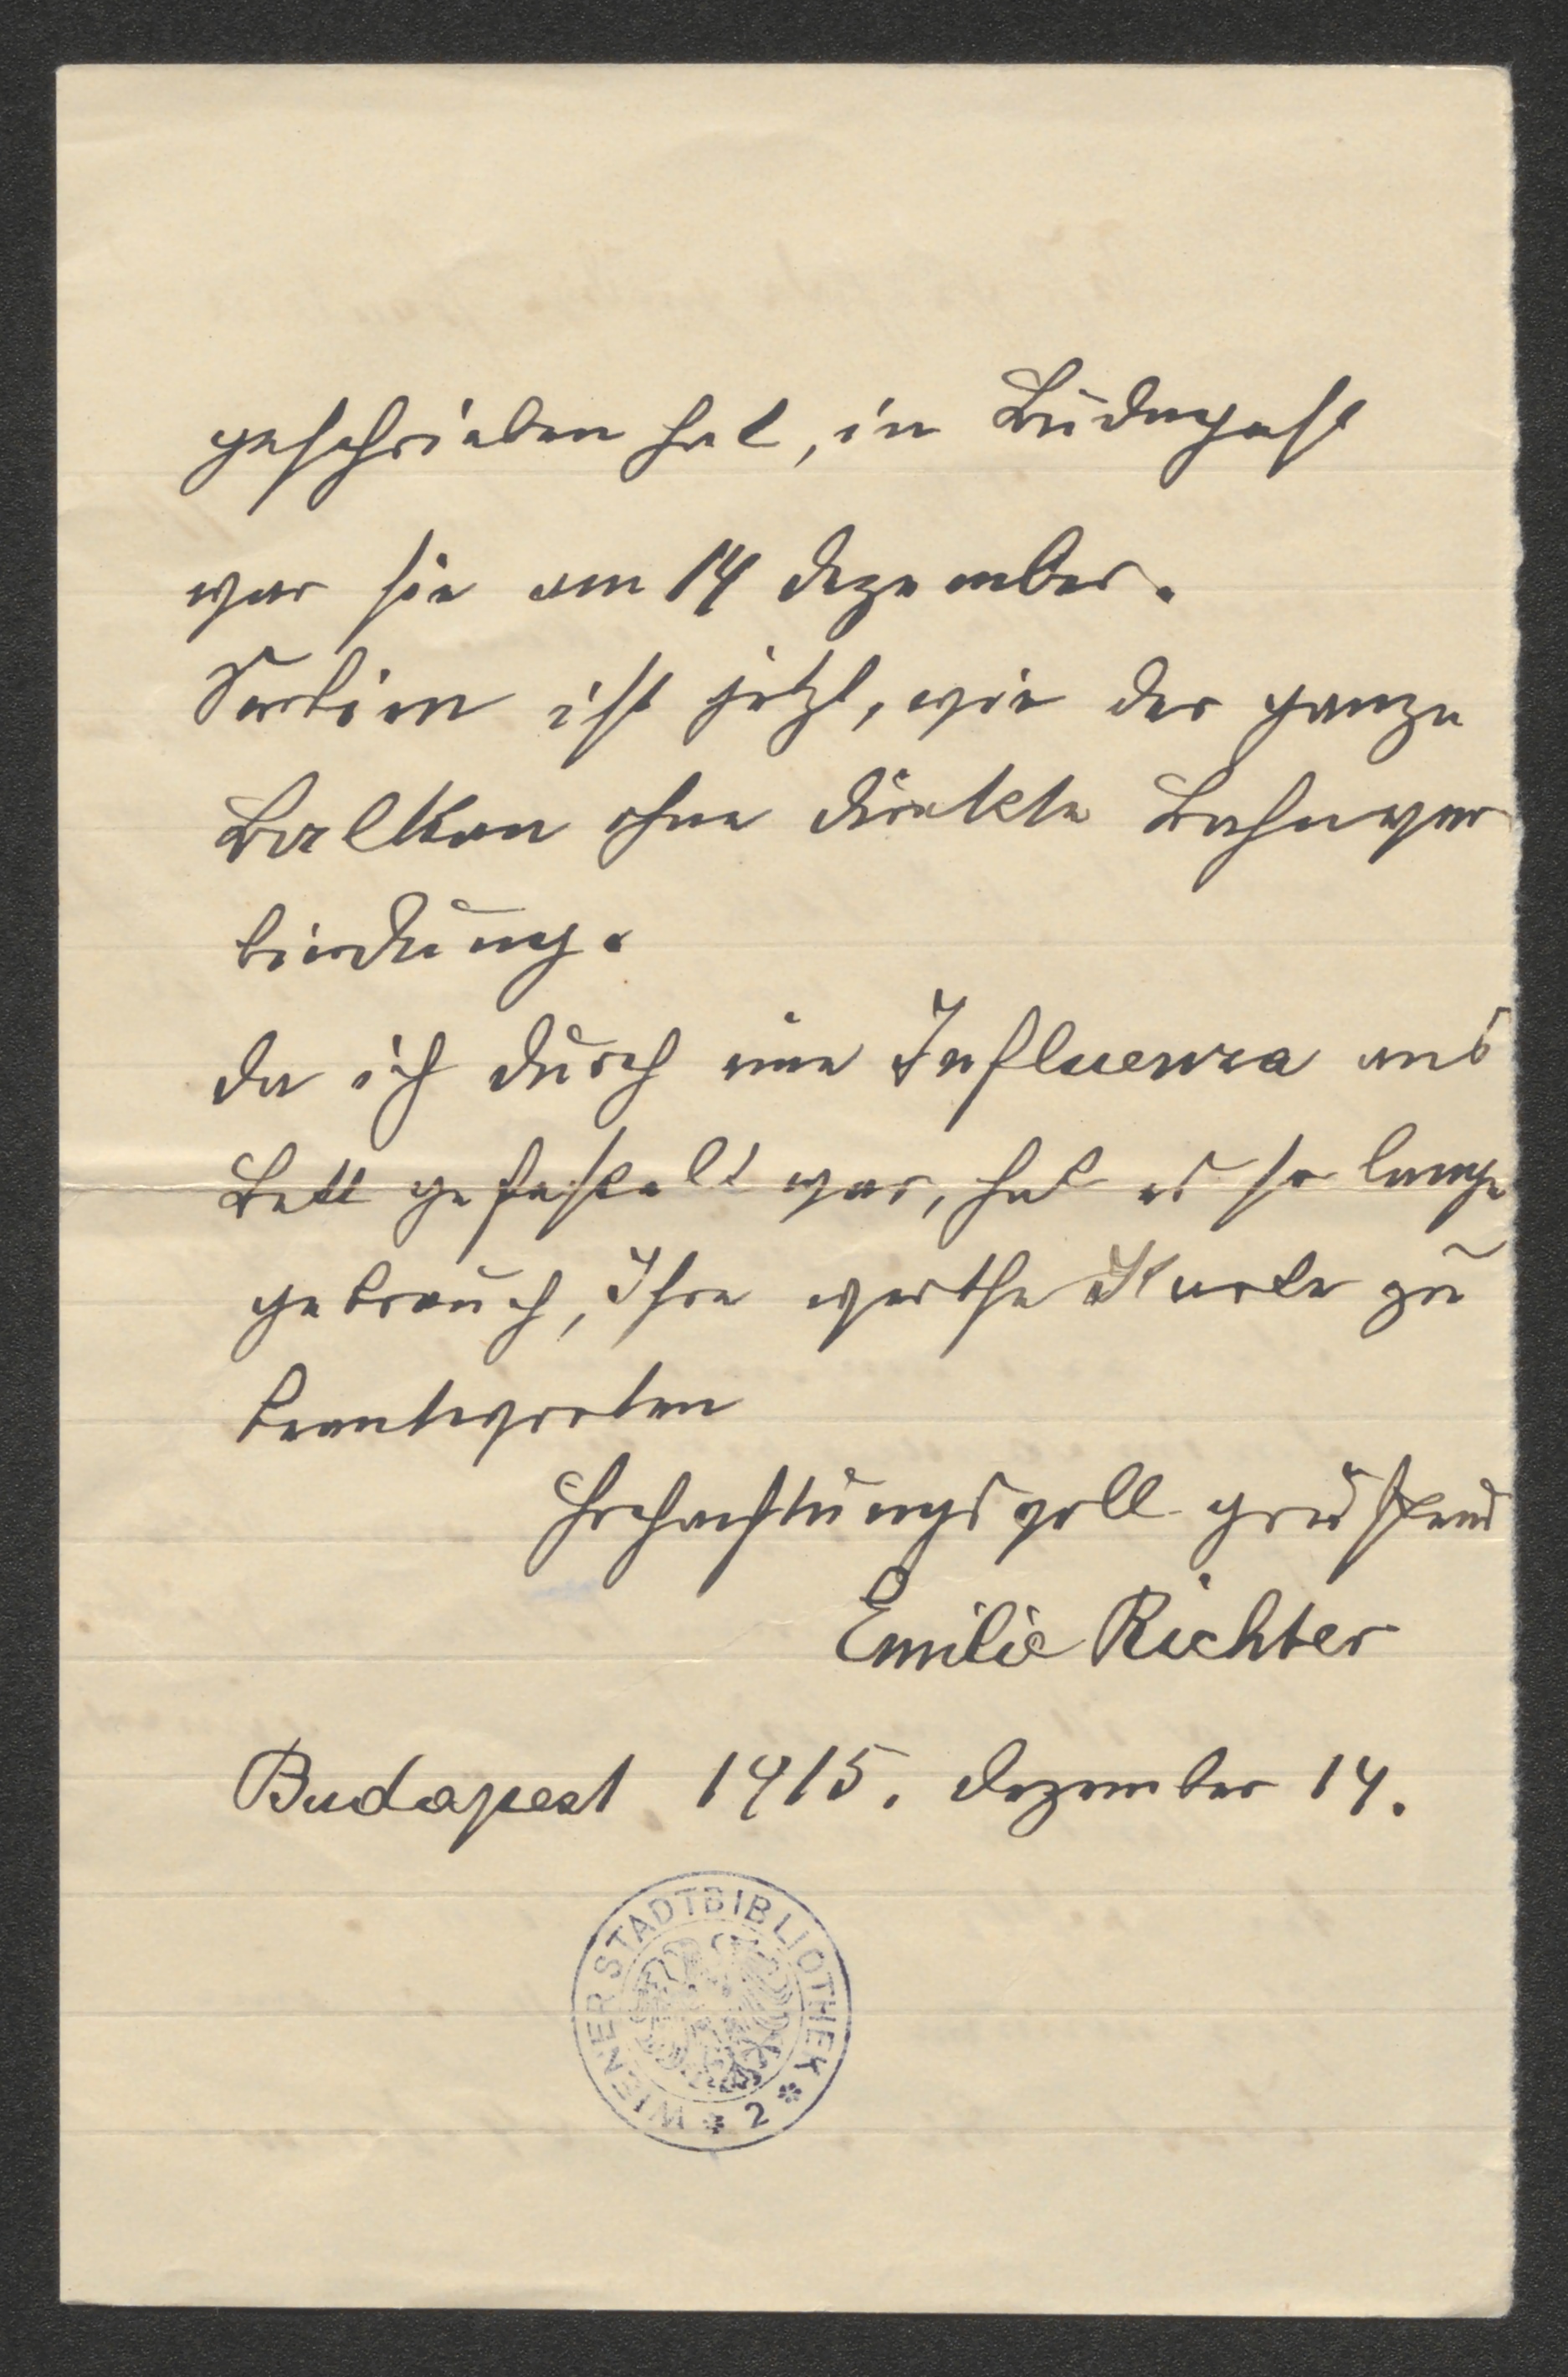 geschrieben hat, in Budapest
war sie am 14 Dezember.
Serbien ist jetzt, wie der ganze
Balkan ohne direkte Bahnver
bindung.
Da ich durch eine Influenza ans
Bett gefesselt war, hat es so lange
gebrauch, Ihre werthe Karte zu
beantworten
Hochachtungsvoll grüssend
Emilie Richter
Budapest 1915. Dezember 14.
WIENER STADTBIBLIOTHEK * 2 *